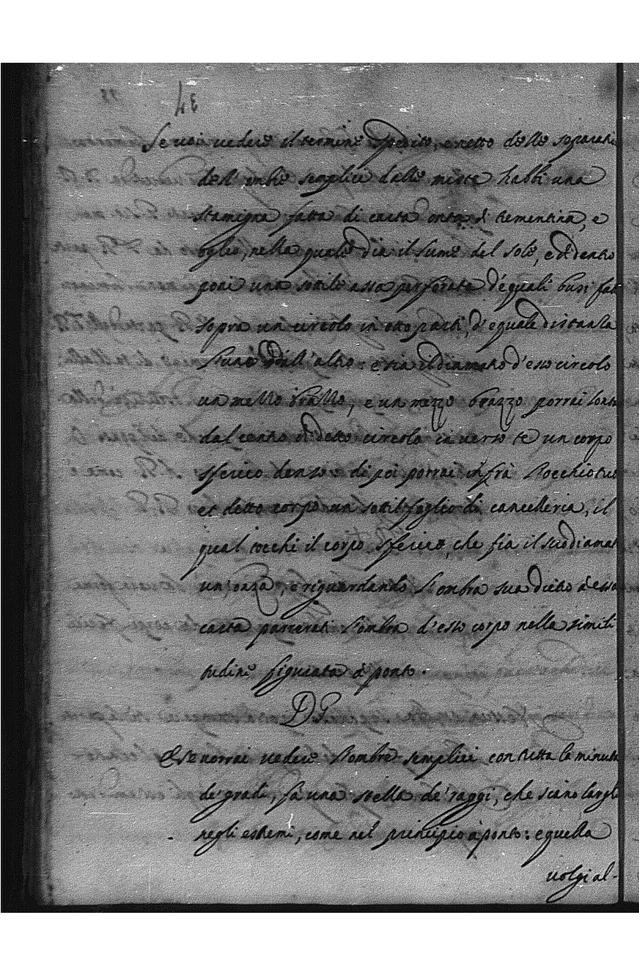 34
Se voi vedere il termine spedito, e netto delle separati
dell'ombre semplice dalle miste habbi una
stamigna fatta di carta onta di trementina, e
oglio, nella quale dia il lume del sole, e di dentro
poni una sottile assa perforata d'equali busi fat
sopra un circolo in otto parti, d'equale distanza
l'uno dall'altro: e sia il diametro d'esso circolo
un mezzo brazzo, e un mezzo brazzo porrai lonta
dal centro di detto circolo in verso te un corpo
sferico denso, di poi porrai infrà l'occhio tuo
et detto corpo un sottil foglio di cancelleria, il
qual tocchi il corpo sferico, che fia il suo diamet
un'onza, e riguardando l'ombra sua drieto d'essa
carta parerati l'ombra d'esso corpo nella simili
tudine figurata à ponto.
Et se vorrai vedere l'ombre semplici con tutta le minute
de' gradi, fà una stella de' raggi, che siano larghi
negli estremi, come nel principio à ponto: e quella
volgi al-